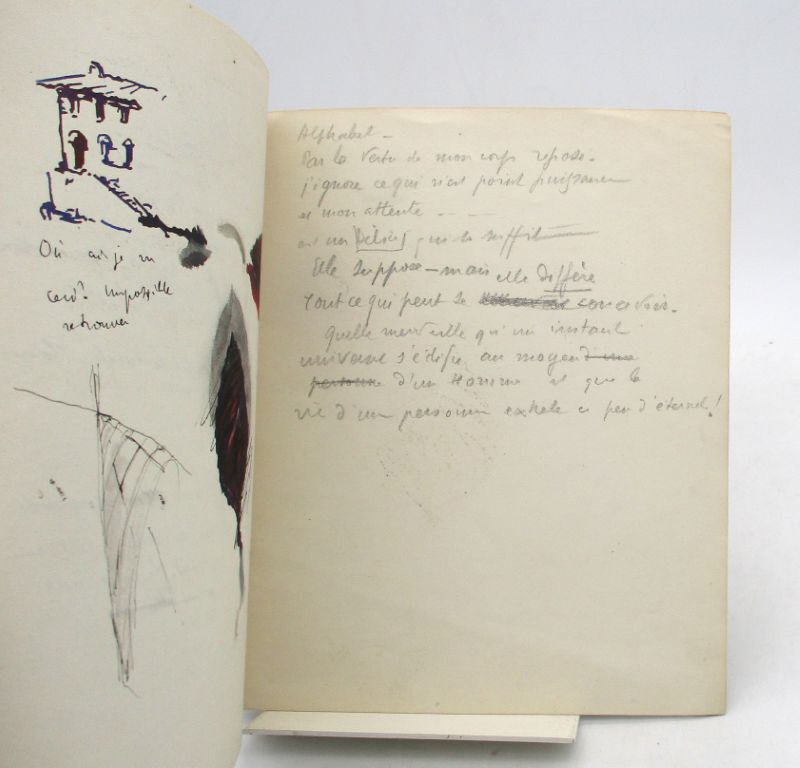 Où ai-je vu
ceci? Impossible
retrouver
Alphabet –
Par la vertu de mon corps reposé –
j'ignore ce qui n'est point puissance
et mon attente – – –
est un Délice qui se suffit
Elle suppose – mais elle diffère
Tout ce qui peut se concevoir.
Quelle merveille qu'un instant
universel s'édifie au moyen d'une
personne d'un Homme et que la
vie d'un personne exhale ce peu d'éternel!